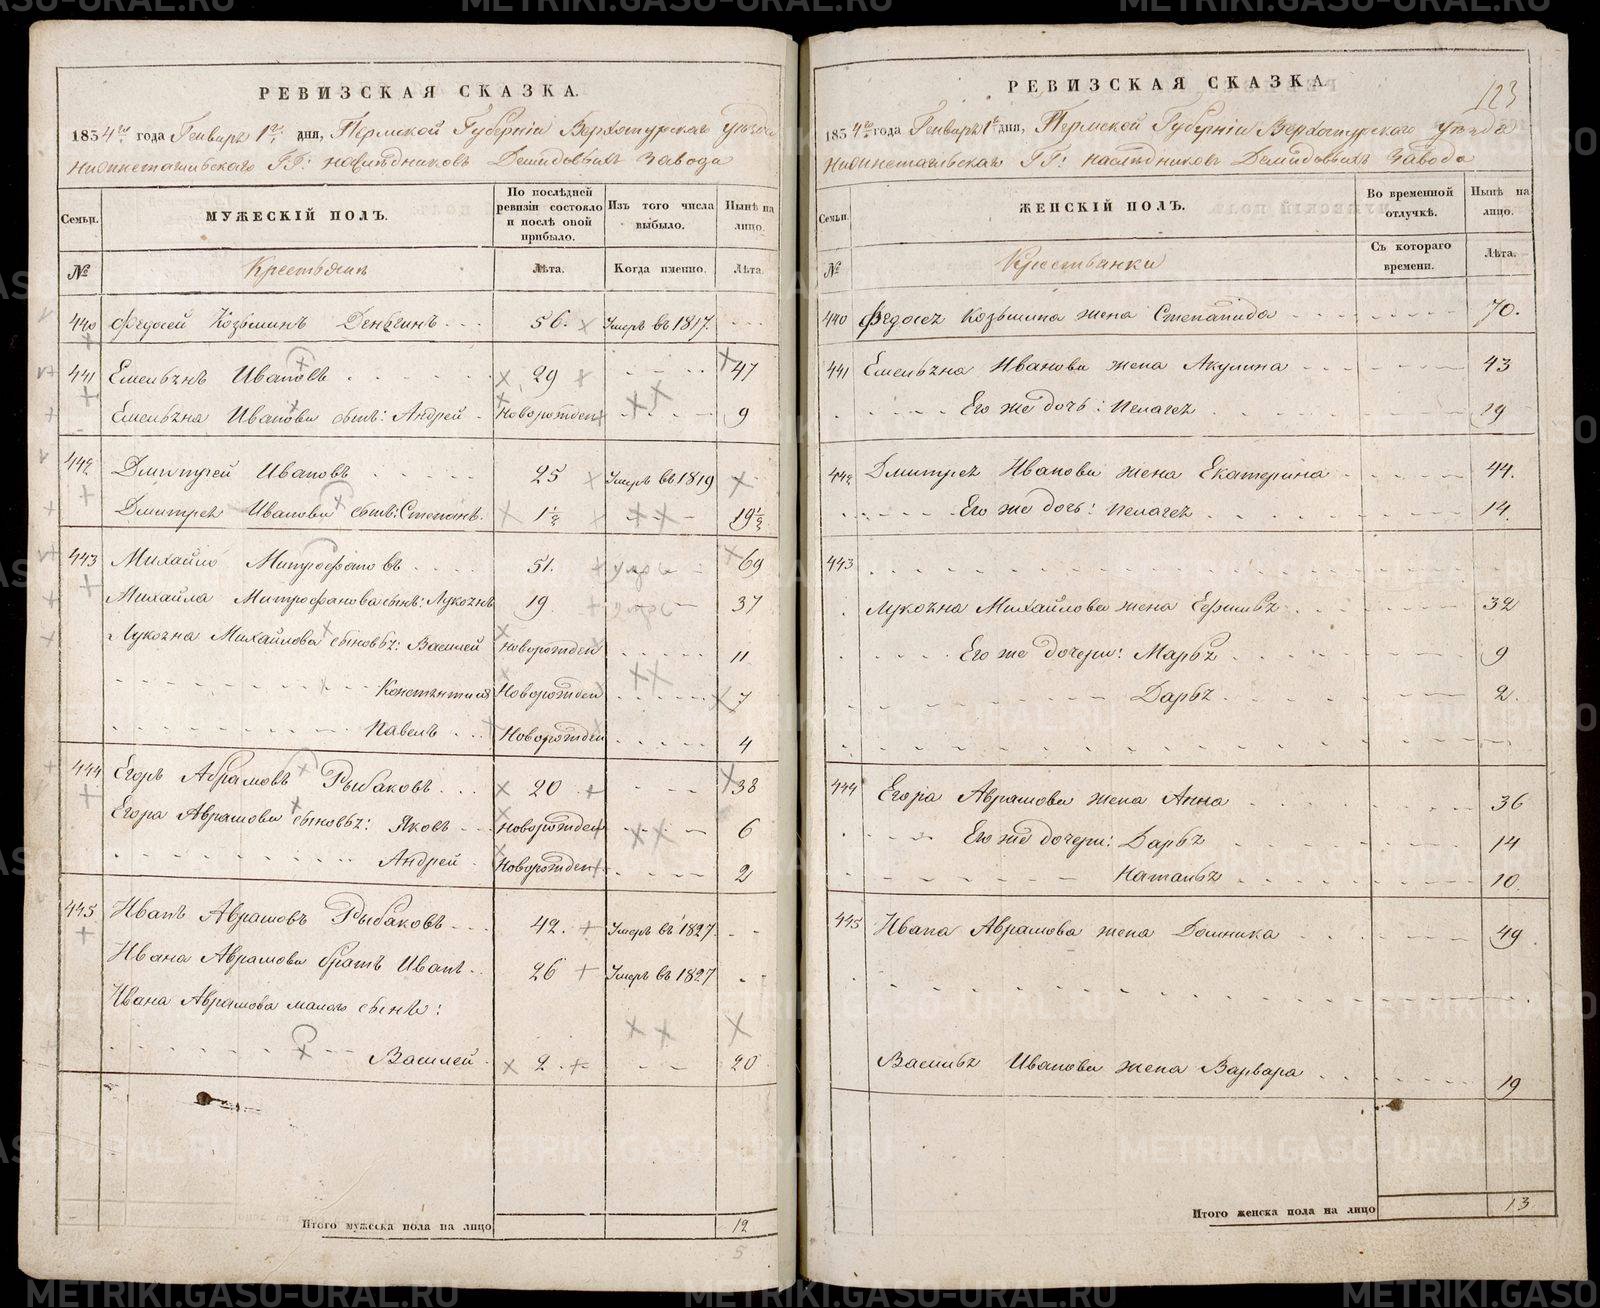 РЕВИЗСКАЯ СКАЗКА.
1834го года Генваря 1го дня, Пермской Губернiи Верхотурскаго уезда
Нижнетагильскаго ГГ: наследниковъ Демидовыхъ Завода
Семьи. МУЖЕСКIЙ ПОЛЪ. По послѣдней ревизiи состояло и послѣ оной прибыло. Изъ того числа выбыло. Нынѣ на лицо.
№ Крестьяне Лѣта. Когда именно. Лѣта.
440 Федосей Козьминъ 56. Умеръ въ 1817.
441 Емельянъ Ивановъ 29 47
Емельяна Иванова сынъ: Андрей Новорожден 9
442 Дмитрей Ивановъ 25 Умеръ въ 1819
Дмитрея Иванова сынъ: Степанъ. 1½ 19½
443 Михайло Митрофановъ 51. 69
Михайла Митрофанова сынъ: Лукоянъ 19 37
Лукояна Михайлова сыновья: Василей Новорожден 11
Константинъ Новорожден 7
Павелъ Новорожден 4
444 Егоръ Абрамовъ Рыбаковъ 20 38
Егора Абрамова сыновья: Яковъ Новорожден 6
Андрей Новорожден 2
445 Иванъ Аврамовъ Рыбаковъ 42. Умеръ въ 1827.
Ивана Аврамова братъ Иванъ 26 Умеръ въ 1827
Ивана Аврамова малого сынъ:
Василей 2 20
Итого мужеска пола на лицо 12
5
123
РЕВИЗСКАЯ СКАЗКА.
1834го года Генваря 1го дня, Пермской Губернiи Верхотурскаго уезда
Нижнетагильскаго ГГ: наследниковъ Демидовыхъ Завода
Семьи. ЖЕНСКIЙ ПОЛЪ. Во временной отлучкѣ. Нынѣ на лицо.
№ Крестьянки Съ котораго времени. Лѣта.
440 Федосея Козьмина жена Степанида 70.
441 Емельяна Иванова жена Акулина 43
Его же дочь: Пелагея 19
442 Дмитрея Иванова жена Екатерина 44.
Его же дочь: Пелагея 14.
443
Лукояна Михайлова жена Ефимья 32
Его же дочери: Марья 9
Дарья 2.
444 Егора Аврамова жена Анна 36
Его же дочери: Дарья 14
Наталья 10.
445 Ивана Аврамова жена Домника 49.
Василья Иванова жена Варвара 19
Итого женска пола на лицо 13
METRIKI.GASO-URAL.RU